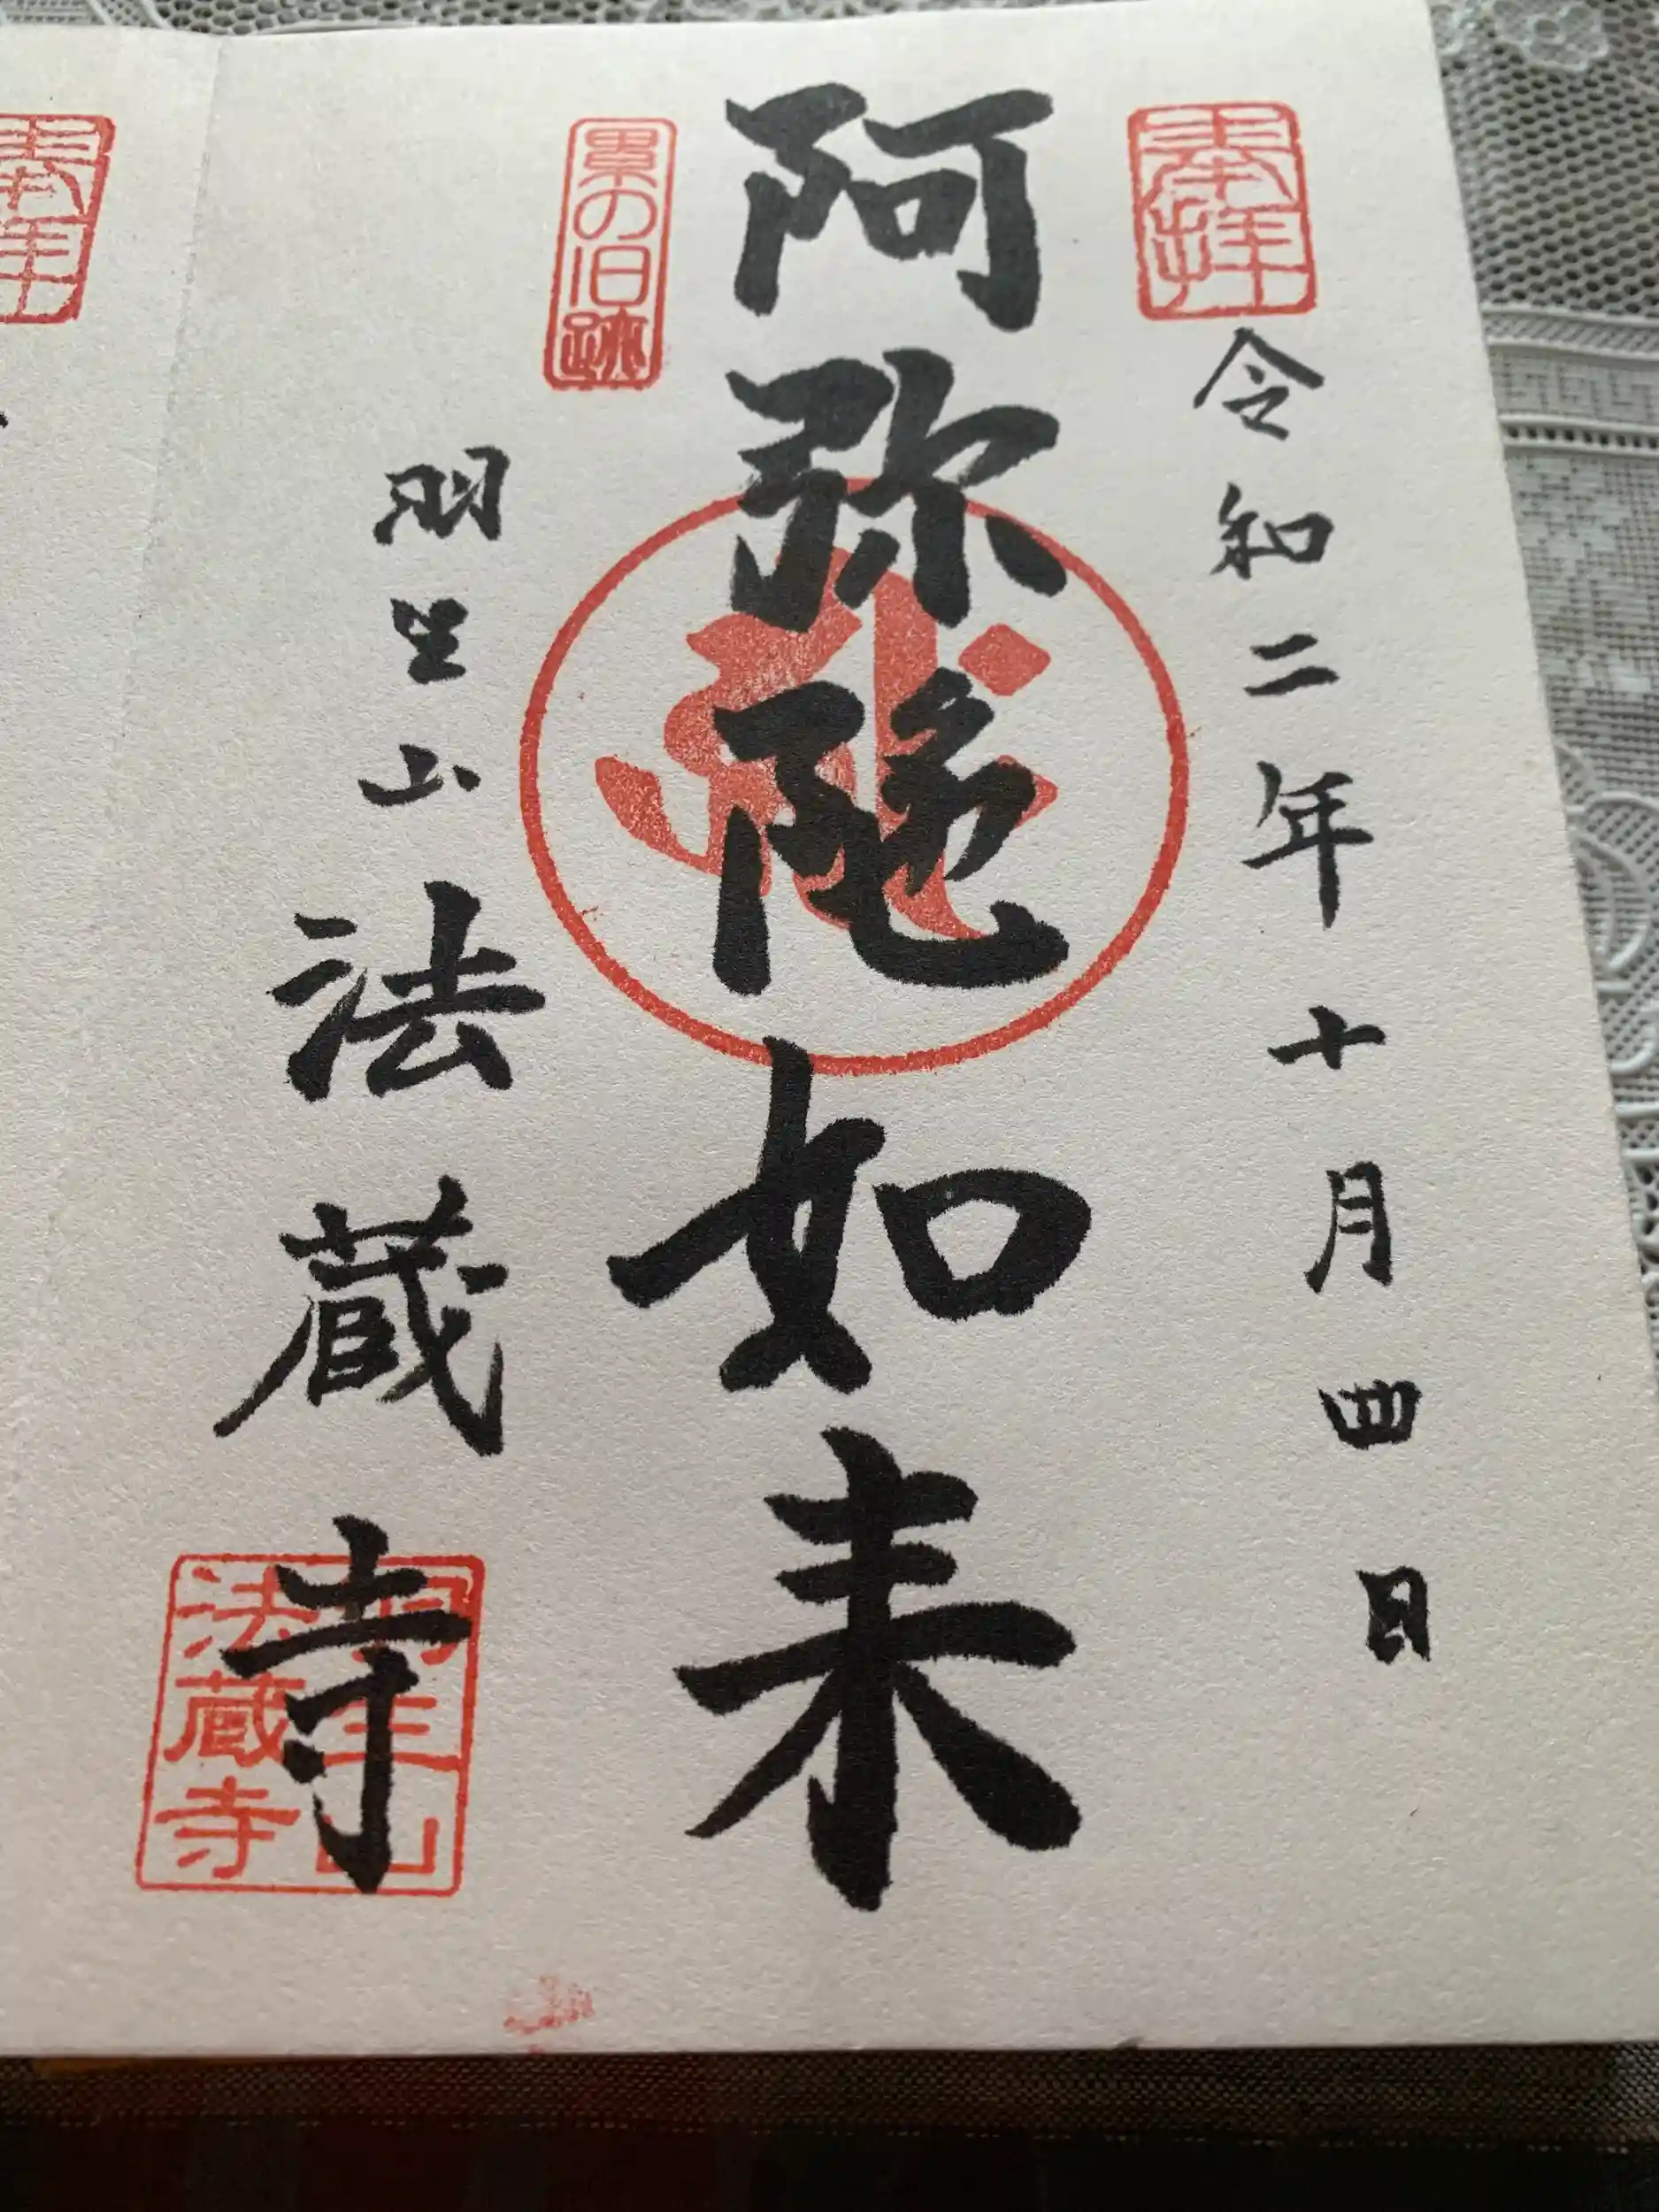 奉拝
令和二年十月四日
阿弥陀如来
累の旧跡
羽生山 法蔵寺
羽生山
法蔵寺
奉拝